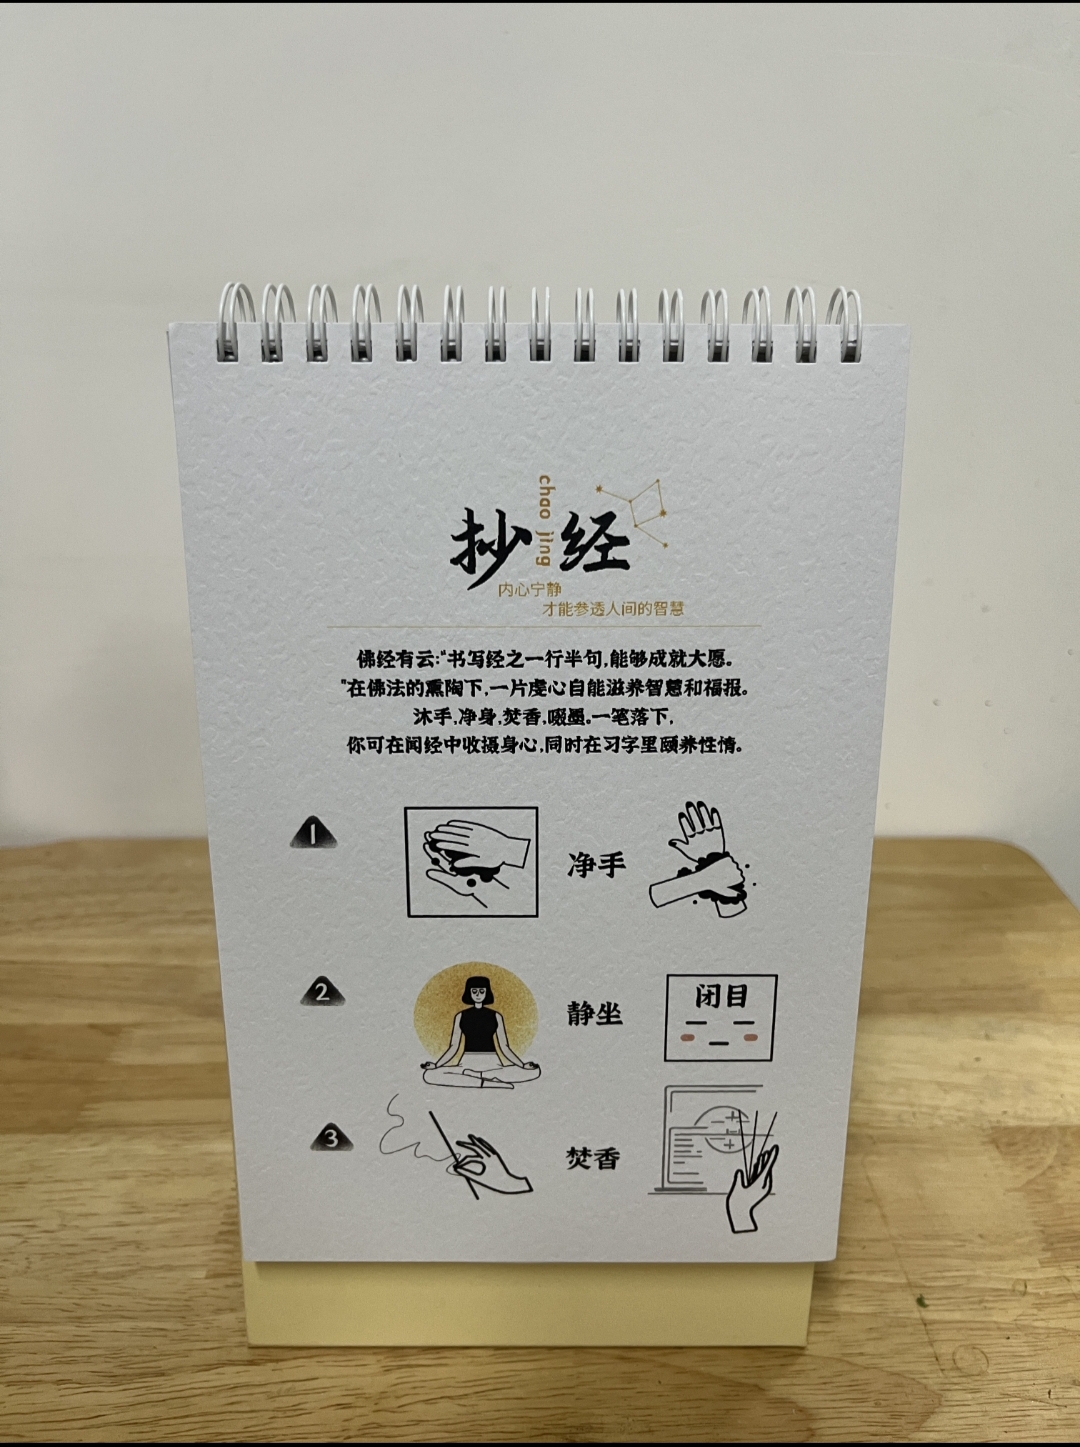 抄经
chao jing
内心宁静
才能参透人间的智慧
佛经有云:"书写经之一行半句,能够成就大愿。
"在佛法的熏陶下,一片虔心自能滋养智慧和福报。
沐手,净身,焚香,啜墨。一笔落下,
你可在闻经中收摄身心,同时在习字里颐养性情。
1
净手
2
静坐
闭目
3
焚香